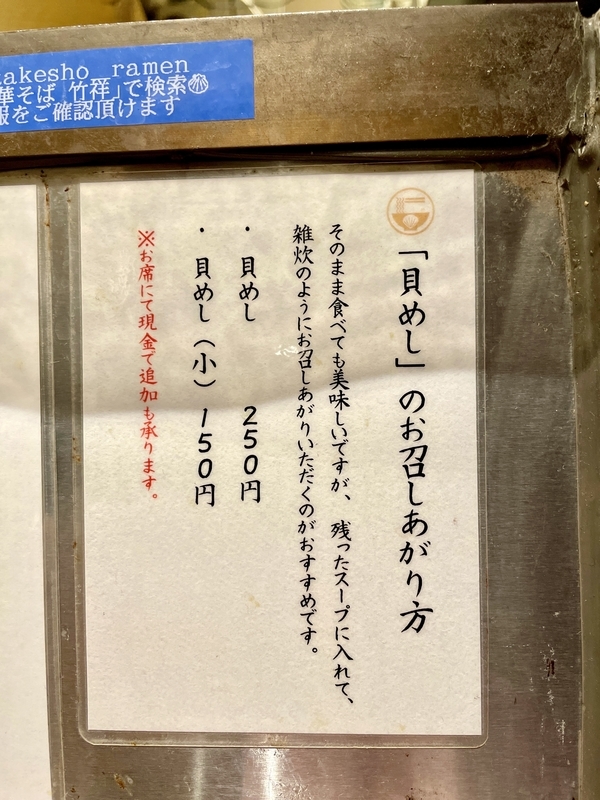 takesho_ramen
華そば 竹祥」で検索
報をご確認頂けます
「貝めし」のお召しあがり方
そのまま食べても美味しいですが、残ったスープに入れて、
雑炊のようにお召しあがりいただくのがおすすめです。
・貝めし 250円
・貝めし(小) 150円
※お席にて現金で追加も承ります。